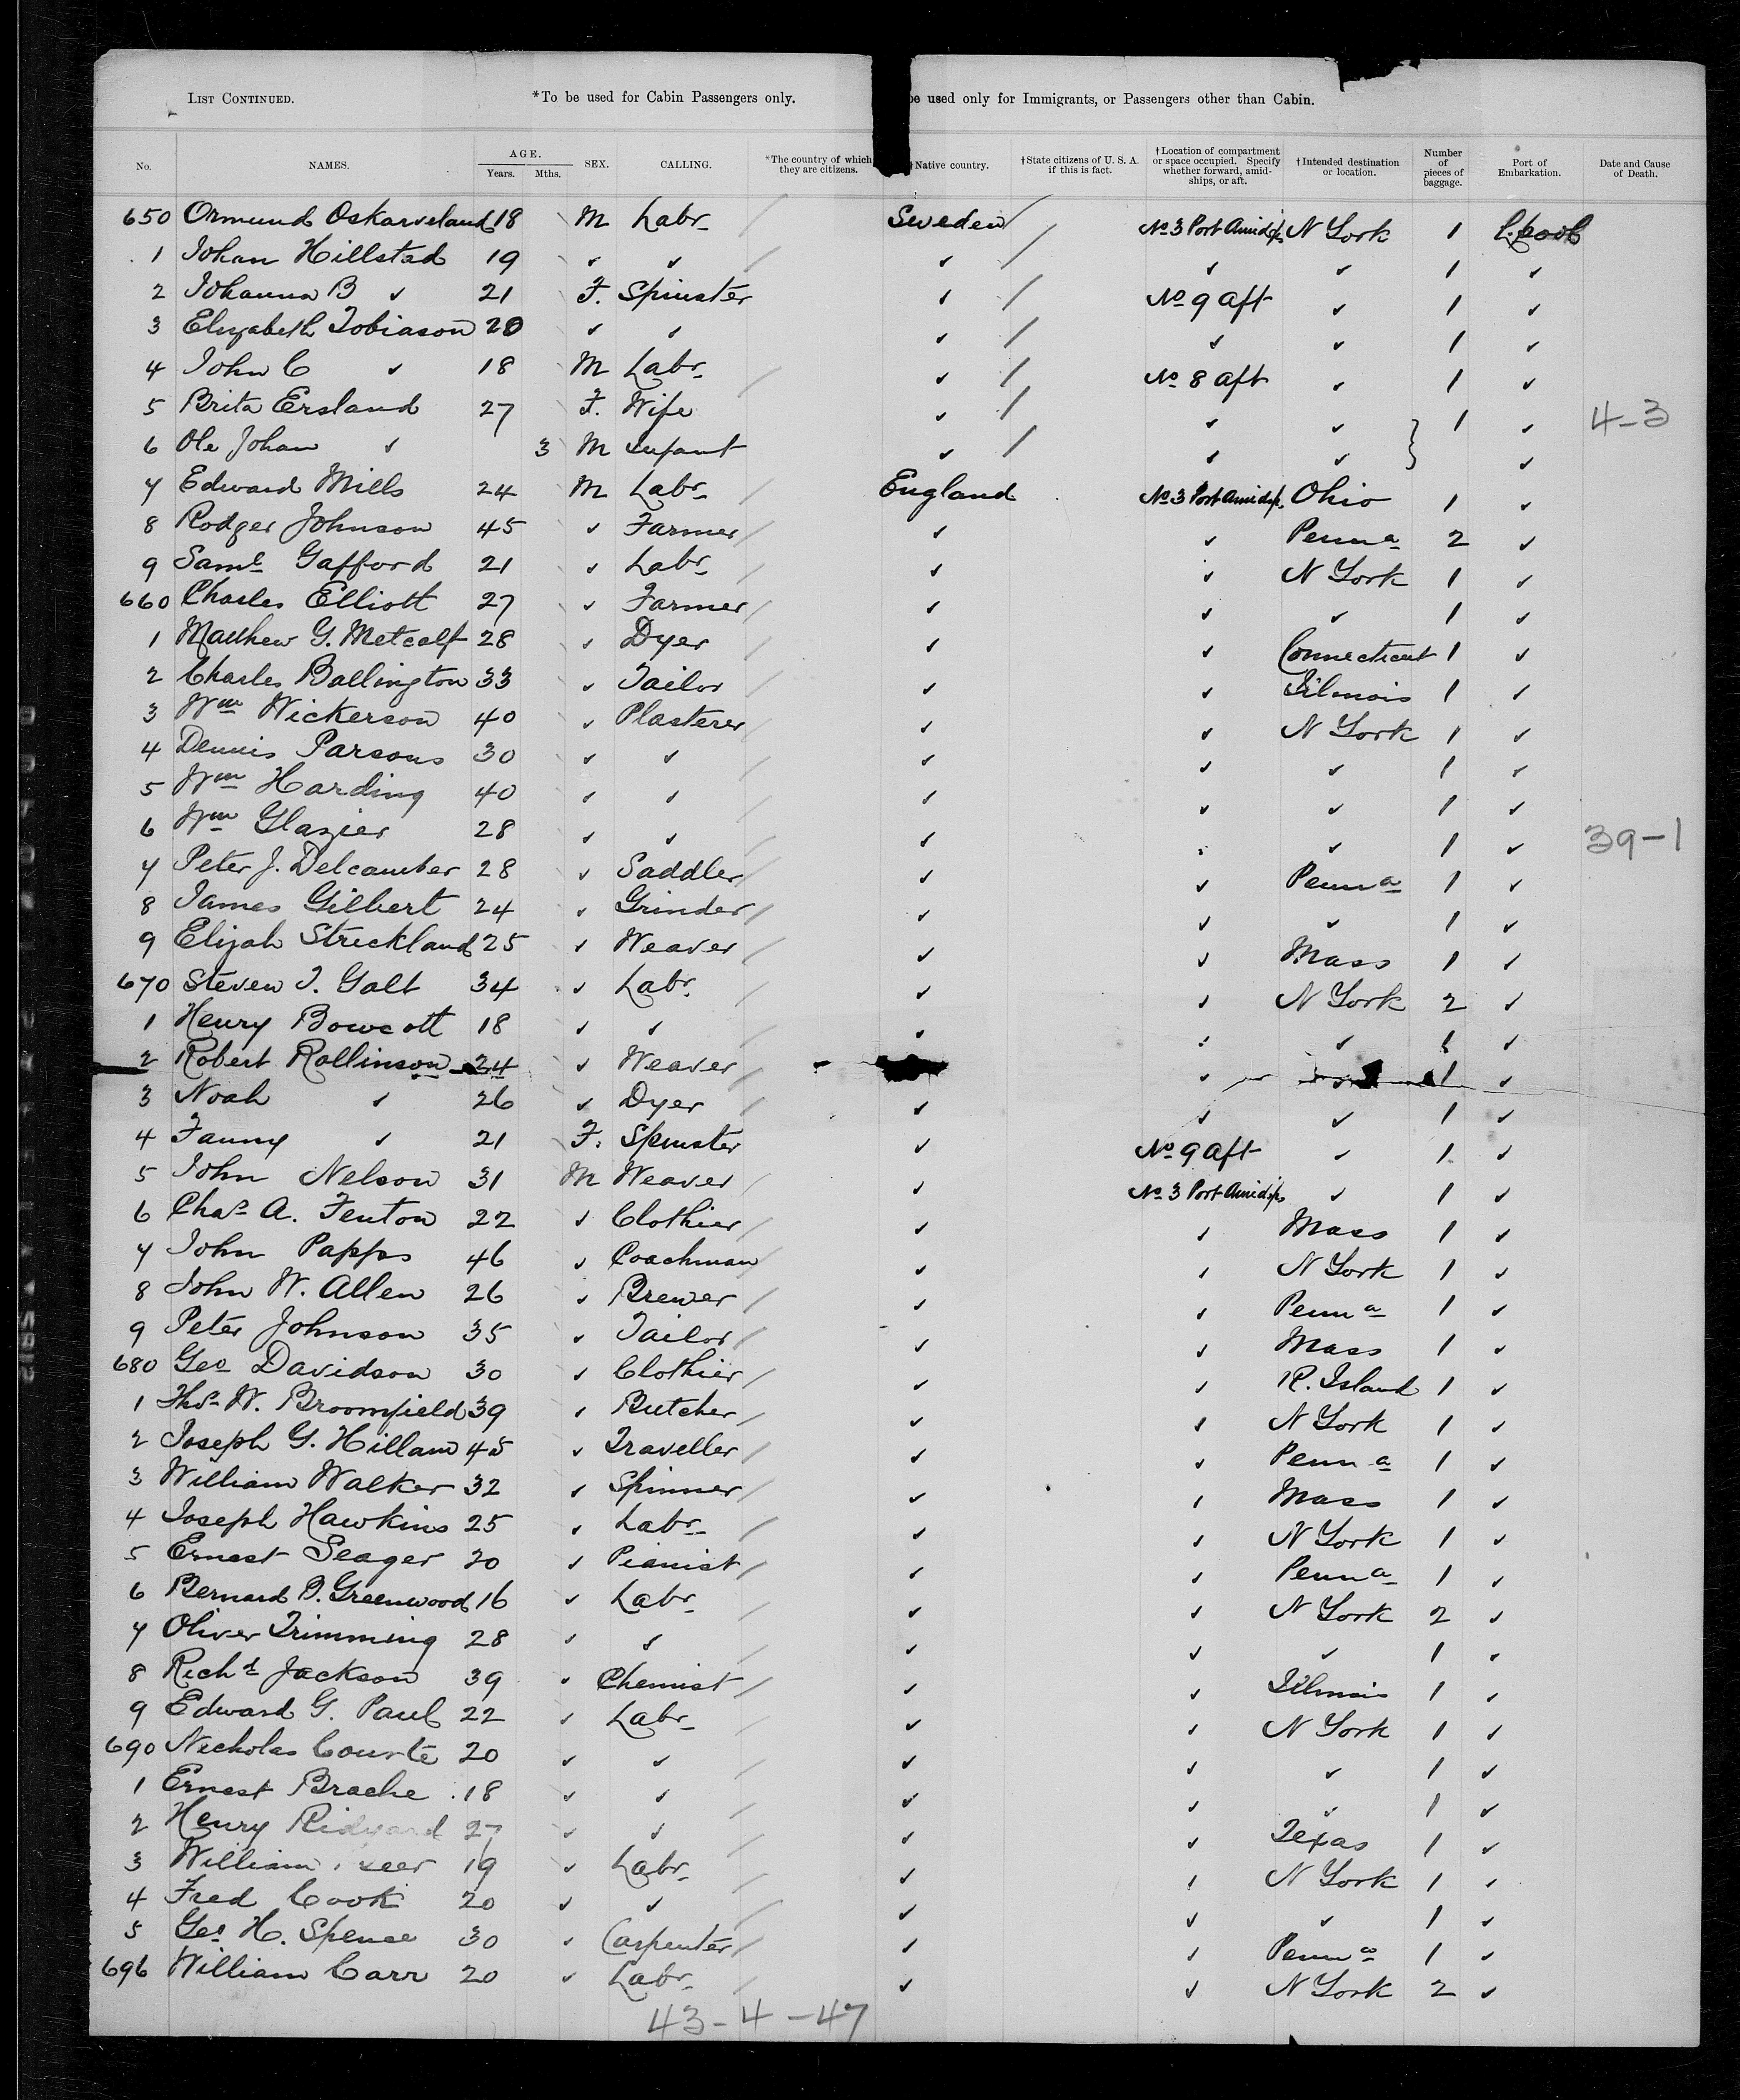 LIST CONTINUED. *To be used for Cabin Passengers only. be used only for Immigrants, or Passengers other than Cabin.
No. NAMES. AGE. Years. Mths. SEX. CALLING. *The country of which they are citizens. Native country. †State citizens of U. S. A. if this is fact. †Location of compartment or space occupied. Specify whether forward, amidships, or aft. †Intended destination or location. Number of pieces of baggage. Port of Embarkation. Date and Cause of Death.
650 Ormund Oskarveland 18 M Labr Sweden / No 3 Port Amidsps N York 1 L.pool
1 Johan Hillstad 19 ✓ ✓ ✓ / ✓ ✓ 1 ✓
2 Johanna B ✓ 21 F. Spinster ✓ / No 9 aft ✓ 1 ✓
3 Elizabeth Tobiason 20 ✓ ✓ ✓ / ✓ ✓ 1 ✓
4 John C ✓ 18 M Labr ✓ / No 8 aft ✓ 1 ✓
5 Brita Ersland 27 F. Wife ✓ / ✓ ✓ } 1 ✓ 4-3
6 Ole Johan ✓ 3 M Infant ✓ / ✓ ✓ ✓
7 Edward Mills 24 M Labr England No 3 Port Amidsps Ohio 1 ✓
8 Rodger Johnson 45 ✓ Farmer ✓ ✓ Penna 2 ✓
9 Saml Gafford 21 ✓ Labr ✓ ✓ N York 1 ✓
660 Charles Elliott 27 ✓ Farmer ✓ ✓ ✓ 1 ✓
1 Matthew G. Metcalf 28 ✓ Dyer ✓ ✓ Connecticut 1 ✓
2 Charles Ballington 33 ✓ Tailor ✓ ✓ Illinois 1 ✓
3 Wm Nickerson 40 ✓ Plasterer ✓ ✓ N York 1 ✓
4 Dennis Parsons 30 ✓ ✓ ✓ ✓ ✓ 1 ✓
5 Wm Harding 40 ✓ ✓ ✓ ✓ ✓ 1 ✓
6 Wm Glazier 28 ✓ ✓ ✓ ✓ ✓ 1 ✓ 39-1
7 Peter J. Delcamber 28 ✓ Saddler ✓ ✓ Penna 1 ✓
8 James Gilbert 24 ✓ Grinder ✓ ✓ ✓ 1 ✓
9 Elijah Strickland 25 ✓ Weaver ✓ ✓ Mass 1 ✓
670 Steven T. Galt 34 ✓ Labr ✓ ✓ N York 2 ✓
1 Henry Bowcott 18 ✓ ✓ ✓ ✓ ✓ 1 ✓
2 Robert Rollinson 24 ✓ Weaver ✓ 1 ✓
3 Noah ✓ 26 ✓ Dyer ✓ ✓ ✓ 1 ✓
4 Fanny ✓ 21 F. Spinster ✓ No 9 aft ✓ 1 ✓
5 John Nelson 31 M Weaver ✓ No 3 Port Amidsps ✓ 1 ✓
6 Chas A. Fenton 22 ✓ Clothier ✓ ✓ Mass 1 ✓
7 John Pappas 46 ✓ Coachman ✓ ✓ N York 1 ✓
8 John W. Allen 26 ✓ Brewer ✓ ✓ Penna 1 ✓
9 Peter Johnson 35 ✓ Tailor ✓ ✓ Mass 1 ✓
680 Geo Davidson 30 ✓ Clothier ✓ ✓ R. Island 1 ✓
1 Thos W. Broomfield 39 ✓ Butcher ✓ ✓ N York 1 ✓
2 Joseph G. Hillam 45 ✓ Traveller ✓ ✓ Penna 1 ✓
3 William Walker 32 ✓ Spinner ✓ ✓ Mass 1 ✓
4 Joseph Hawkins 25 ✓ Labr ✓ ✓ N York 1 ✓
5 Ernest Seager 20 ✓ Pianist ✓ ✓ Penna 1 ✓
6 Bernard B. Greenwood 16 ✓ Labr ✓ ✓ N York 2 ✓
7 Oliver Trimming 28 ✓ ✓ ✓ ✓ ✓ 1 ✓
8 Richd Jackson 39 ✓ Chemist ✓ ✓ Illinois 1 ✓
9 Edward G. Paul 22 ✓ Labr ✓ ✓ N York 1 ✓
690 Nicholas Courte 20 ✓ ✓ ✓ ✓ ✓ 1 ✓
1 Ernest Brache 18 ✓ ✓ ✓ ✓ ✓ 1 ✓
2 Henry Ridyard 27 ✓ ✓ ✓ ✓ Texas 1 ✓
3 William 19 ✓ Labr ✓ ✓ N York 1 ✓
4 Fred Cook 20 ✓ ✓ ✓ ✓ ✓ 1 ✓
5 Geo H. Spence 30 ✓ Carpenter ✓ ✓ Penna 1 ✓
696 William Carr 20 ✓ Labr ✓ ✓ N York 2 ✓
43-4-47